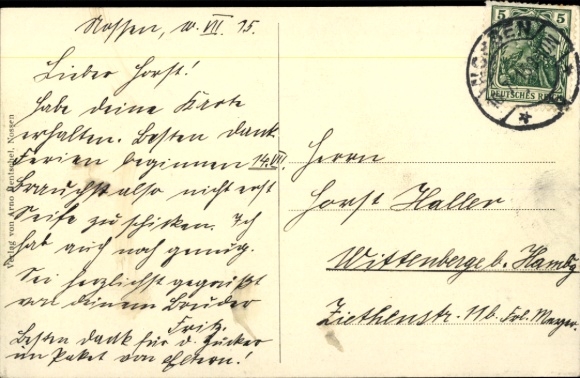 Nossen, 10. VII. 15.
Lieber Horst!
Habe deine Karte
erhalten. Besten Dank.
Ferien beginnen 14.VII.
Brauchst also nicht erst
Seife zu schicken. Ich
hab auch noch genug.
Sei herzlichst gegrüßt
von deinem Bruder
Fritz.
Besten Dank für d. Zucker
im Paket von Eltern!
Verlag von Arno Hentschel, Nossen
5 5
DEUTSCHES REICH
NOSSEN
Herrn
Horst Haller
Wittenberge b. Hambg
Ziethenstr. 11b. Frl. Meyer.